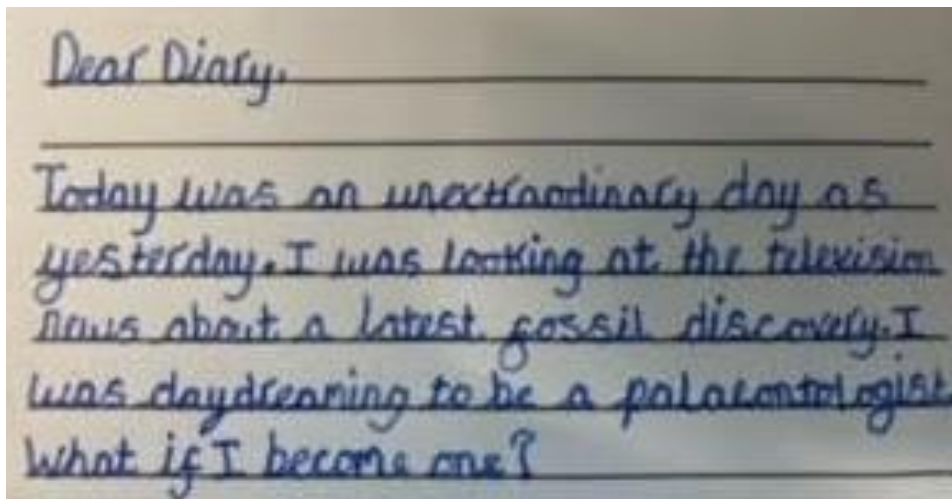 Dear Diary,
Today was an unextraordinary day as
yesterday. I was looking at the television
news about a latest fossil discovery. I
was daydreaming to be a palaeontologist
What if I become one?